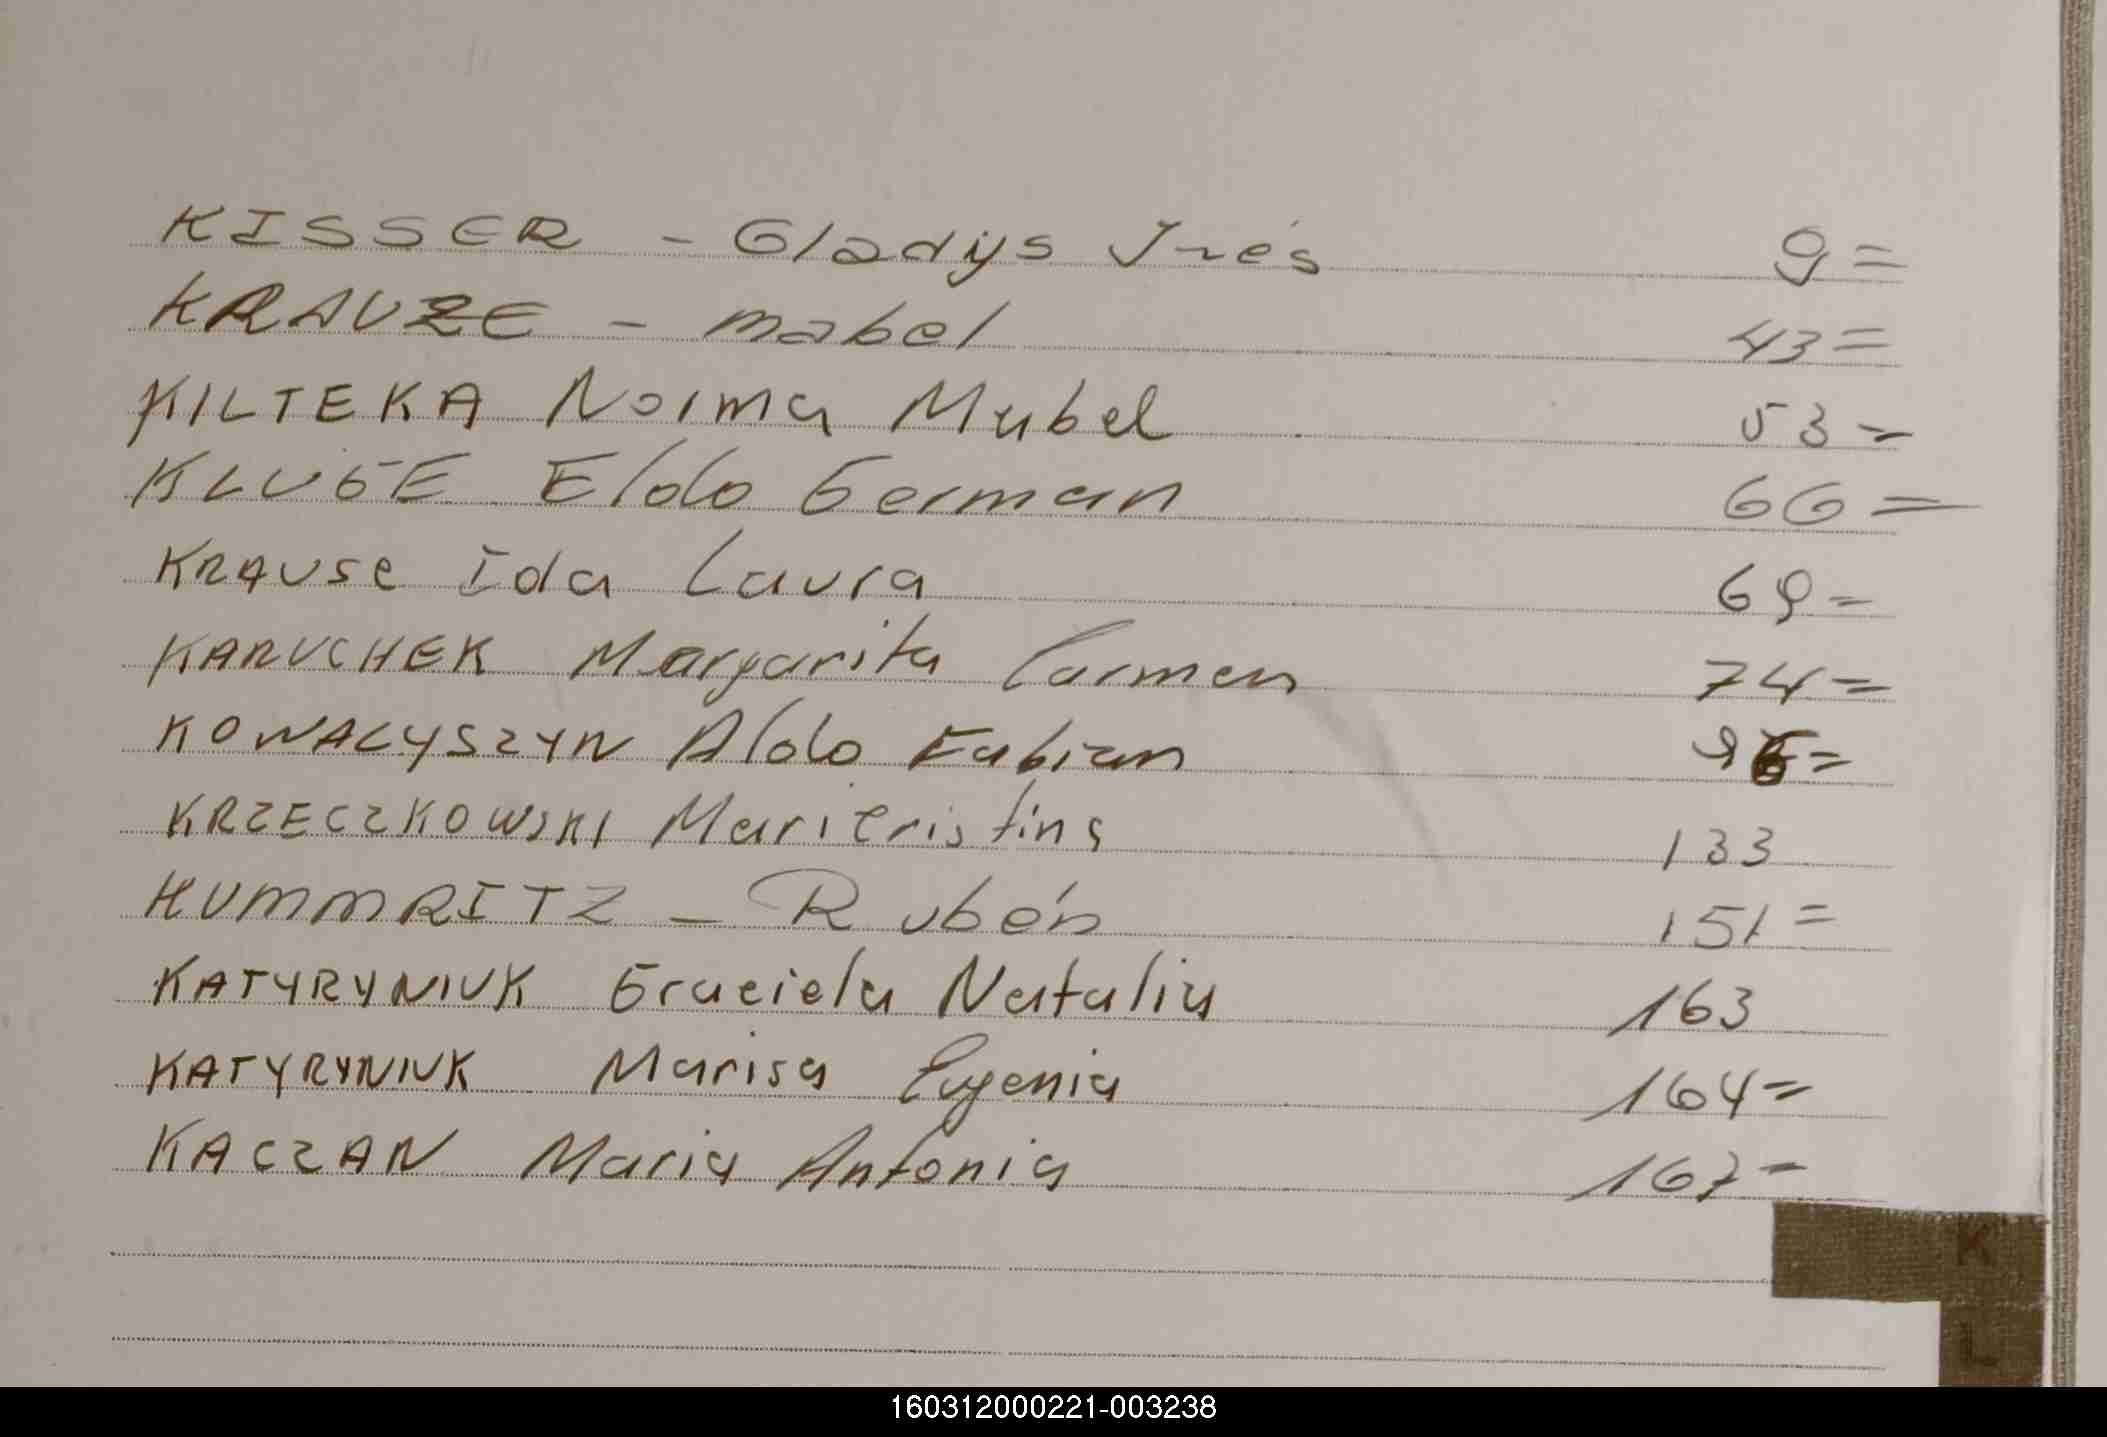 KISSER - Gladys Inés 9=
KRAUZE - Mabel 43=
KILTEKA Norma Mabel 53=
KLUGE Eldo German 66=
KRAUSE Ida Laura 69=
KARUCHEK Margarita Carmen 74=
KOWALYSZYN Aldo Fabian 96=
KRZECZKOWSKI Maricristina 133
KUMMRITZ - Rubén 151=
KATYRYNIUK Graciela Natalia 163
KATYRYNIUK Marisa Eugenia 164=
KACZAN Maria Antonia 167=
K
L
160312000221-003238